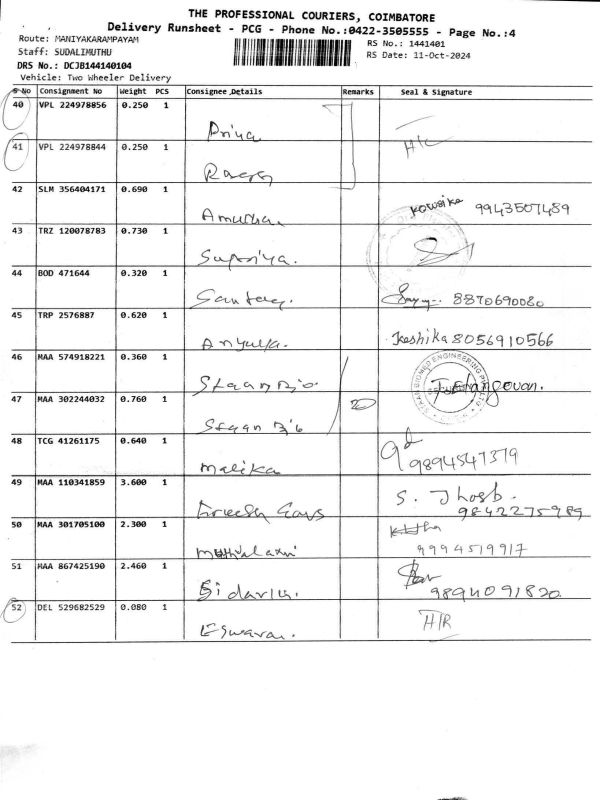 THE PROFESSIONAL COURIERS, COIMBATORE
Delivery Runsheet - PCG - Phone No.:0422-3505555 - Page No.:4
Route: MANIYAKARAMPAYAM
RS No.: 1441401
Staff: SUDALIMUTHU
RS Date: 11-Oct-2024
DRS No.: DCJB144140104
Vehicle: Two Wheeler Delivery
S No Consignment No Weight PCS Consignee Details Remarks Seal & Signature
40 VPL 224978856 0.250 1
Priya
41 VPL 224978844 0.250 1
H/c
42 SLM 356404171 0.690 1
Amutha. Kowsika 9943507489
43 TRZ 120078783 0.730 1
Supriya.
44 BOD 471644 0.320 1
8870690080
45 TRP 2576887 0.620 1
Keshika 8056910566
46 MAA 574918221 0.360 1
47 MAA 302244032 0.760 1
48 TCG 41261175 0.640 1
Malika 9894547379
49 MAA 110341859 3.600 1
S.
9842275989
50 MAA 301705100 2.300 1
9994519917
51 MAA 867425190 2.460 1
9894091820
52 DEL 529682529 0.080 1
Eswaran. H/R